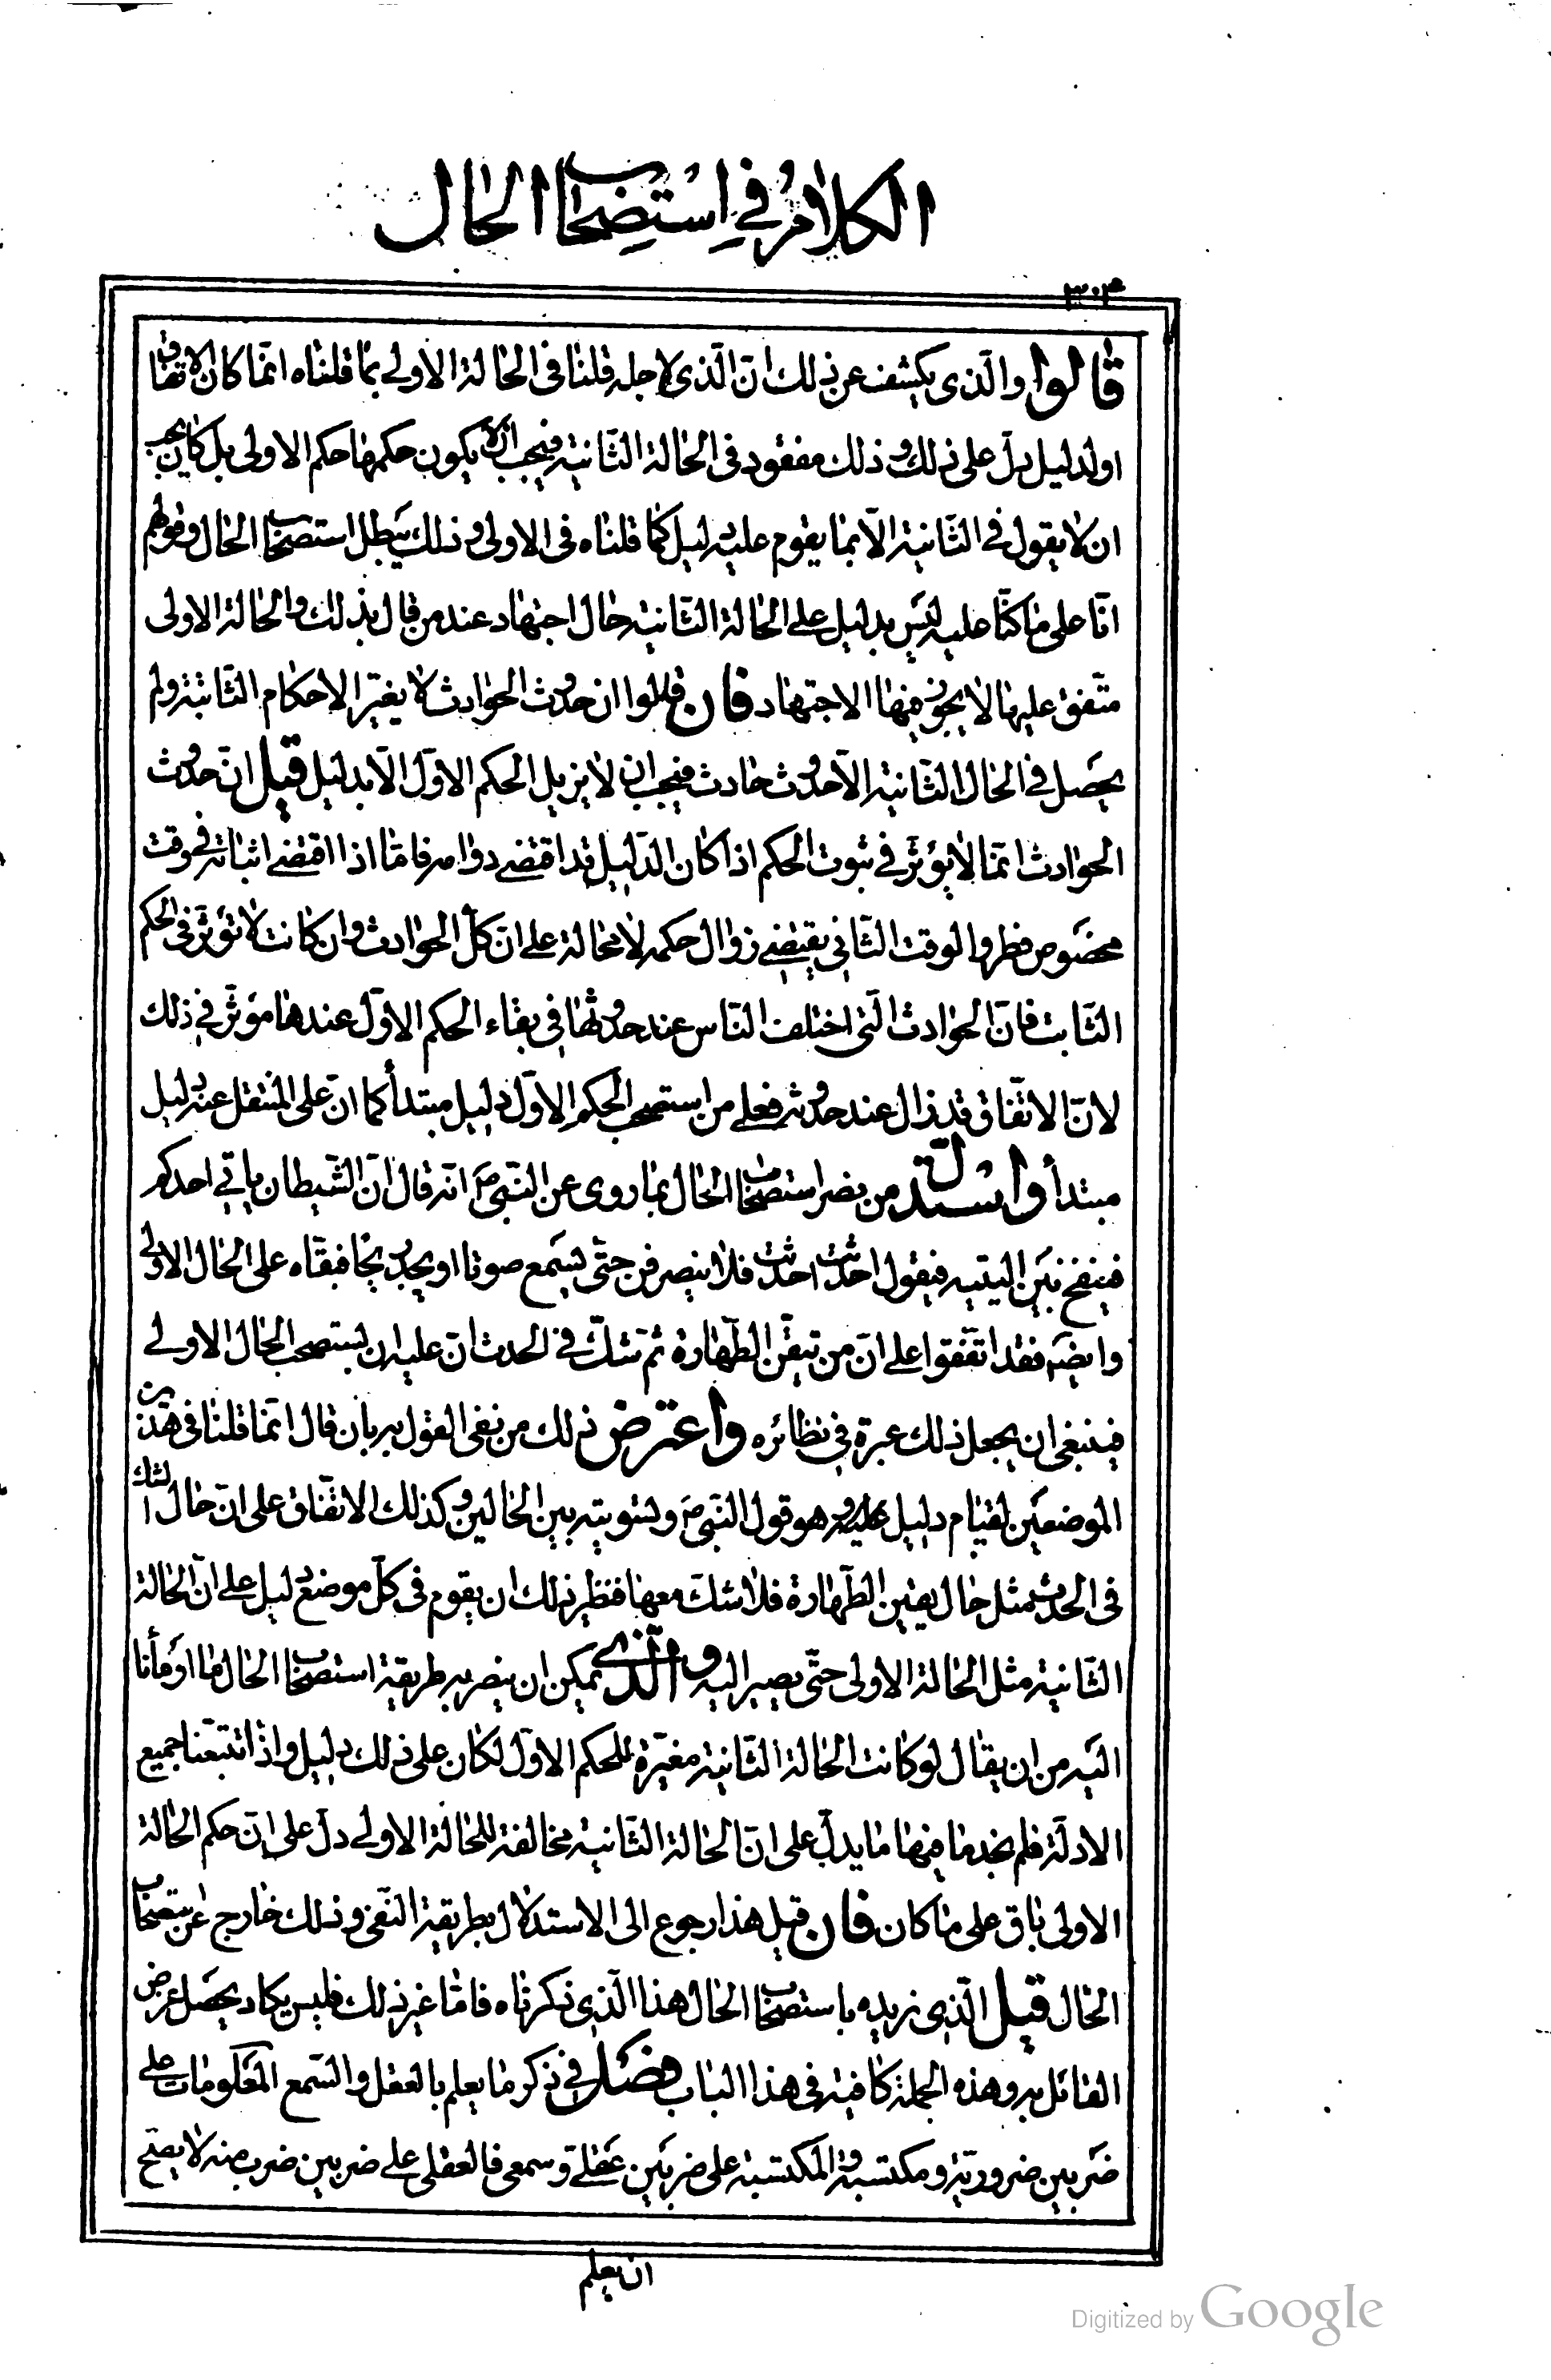 الكلام في استصحاب الحال
٣٠٤
قالوا والّذي يكشف عن ذلك انّ الّذي لاجله قلنا في الحالة الاولى بما قلناه انّما كان الاتفاق
او لدليل دلّ على ذلك وذلك مفقود في الحالة الثّانية فيجب ان لا يكون حكمها حكم الاولى بل كان يجب
ان لا يقول في الثّانية الّا بما يقوم عليه دليل كما قلناه في الاولى وذلك يبطل استصحاب الحال وقولهم
انّا على ما كنّا عليه ليس بدليل على الحالة الثّانية حال اجتهاد عند من قال بذلك والحالة الاولى
متّفق عليها لا يجوز فيها الاجتهاد فان قالوا ان حدوث الحوادث لا يغيّر الاحكام الثّابتة ولم
يحصل في الحال الثّانية الّا حدوث حادث فيجب ان لا يزيل الحكم الاوّل الّا بدليل قيل انّ حدوث
الحوادث انّما لا يؤثّر في ثبوت الحكم اذا كان الدّليل قد اقتضى دوامه فامّا اذا اقتضى اثباته في وقت
مخصوص فطروا الوقت الثّاني يقتضي زوال حكمه لا محالة على انّ كلّ الحوادث وان كانت لا تؤثّر في الحكم
الثّابت فانّ الحوادث الّتي اختلف النّاس عند حدوثها في بقاء الحكم الاوّل عندها مؤثّر في ذلك
لانّ الاتّفاق قد زال عند حدوثه فعلى من استصحب الحكم الاوّل دليل مبتدأ كما انّ على المنتقل عنه دليل
مبتدأ واستدلّ من نصر استصحاب الحال بما روى عن النّبيّ ص انّه قال انّ الشّيطان ياتي احدكم
فينفخ بين اليتيه فيقول احدثت احدثت فلا ينصرفن حتّى يسمع صوتا او يجد ريحا فبقّاه على الحال الاولى
وايضه فقد اتّفقوا على انّ من تيقّن الطّهارة ثم شكّ في الحدث انّ عليه ان يستصحب الحال الاولى
فينبغي ان يجعل ذلك عبرة في نظائره واعترض ذلك من نفى القول به بان قال انّما قلنا في هذين
الموضعين لقيام دليل عليه وهو قول النّبيّ ص وتسويته بين الحالين وكذلك الاتّفاق على انّ حال الشك
في الحدث مثل حال يقين الطّهارة فلا شكّ معها فنظير ذلك ان يقوم في كلّ موضع دليل على انّ الحالة
الثّانية مثل الحالة الاولى حتّى يصير اليه والّذي يمكن ان ينصر به طريقة استصحاب الحال ما اومأنا
اليه من ان يقال لو كانت الحالة الثّانية مغيّرة للحكم الاوّل لكان على ذلك دليل واذا تتبّعنا جميع
الادلّة فلم نجد ما فيها ما يدلّ على انّ الحالة الثّانية مخالفة للحالة الاولى دلّ على انّ حكم الحالة
الاولى باق على ما كان فان قيل هذا رجوع الى الاستدلال بطريقة النّفى وذلك خارج عن استصحاب
الحال قيل الّذي نريده باستصحاب الحال هذا الّذي ذكرناه فامّا غير ذلك فليس يكاد يحصل غرض
القائل به وهذه الجملة كافية في هذا الباب فصل في ذكر ما يعلم بالعقل والسّمع المعلومات على
ضربين ضروريّة ومكتسبة والمكتسبة على ضربين عقلي وسمعي فالعقلي على ضربين ضرب منه لا يصحّ
ان يعلم
Digitized by Google